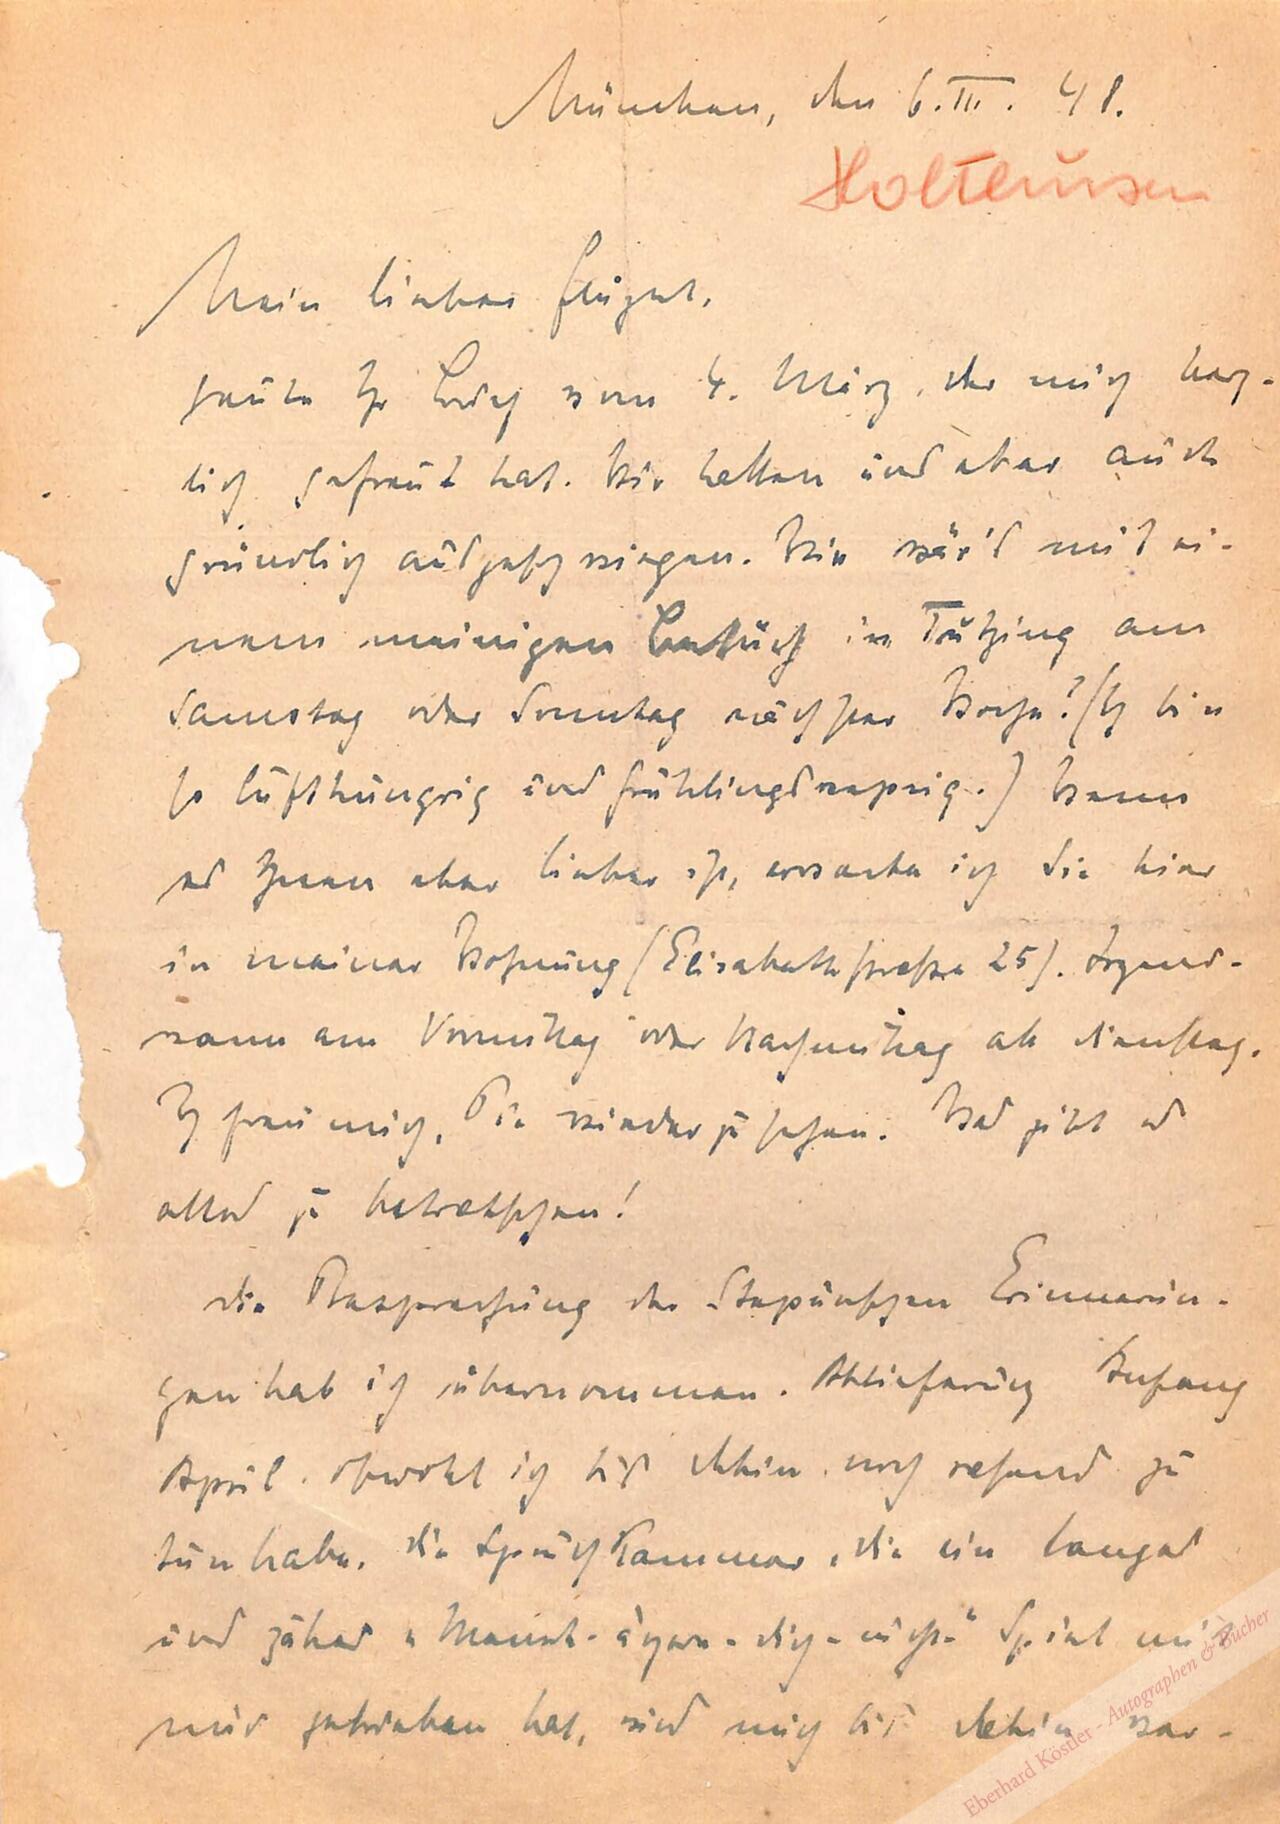 München, den 6. III. 48.
Holthusen
Mein lieber Flügel,
heute Ihr Brief vom 4. März, der mich herz-
lich gefreut hat. Wir hatten uns aber auch
gründlich ausgeschwiegen. Wie wär's mit ei-
nem meinigen Besuch in Tutzing am
Samstag oder Sonntag nächster Woche? (Ich bin
so lufthungrig und frühlings.) Wenn
es Ihnen aber lieber ist, erwarte ich Sie hier
in meiner Wohnung (Elisabethstraße 25). Irgend-
wann am Vormittag oder Nachmittag ab Dienstag.
Ich freu mich, Sie wiederzusehen. Was gibt es
alles zu betratschen!
Die Besprechung der Stepunschen Erinnerun-
gen hab ich übernommen. Ablieferung Anfang
April. Obwohl ich bis dahin noch rasend zu
tun habe. Die Spruchkammer, die ein langes
und zähes „Mensch-ärgere-dich-nicht" Spiel mit
mir getrieben hat, wird mich bis dahin ver-
Eberhard Köstler - Autographen & Bücher